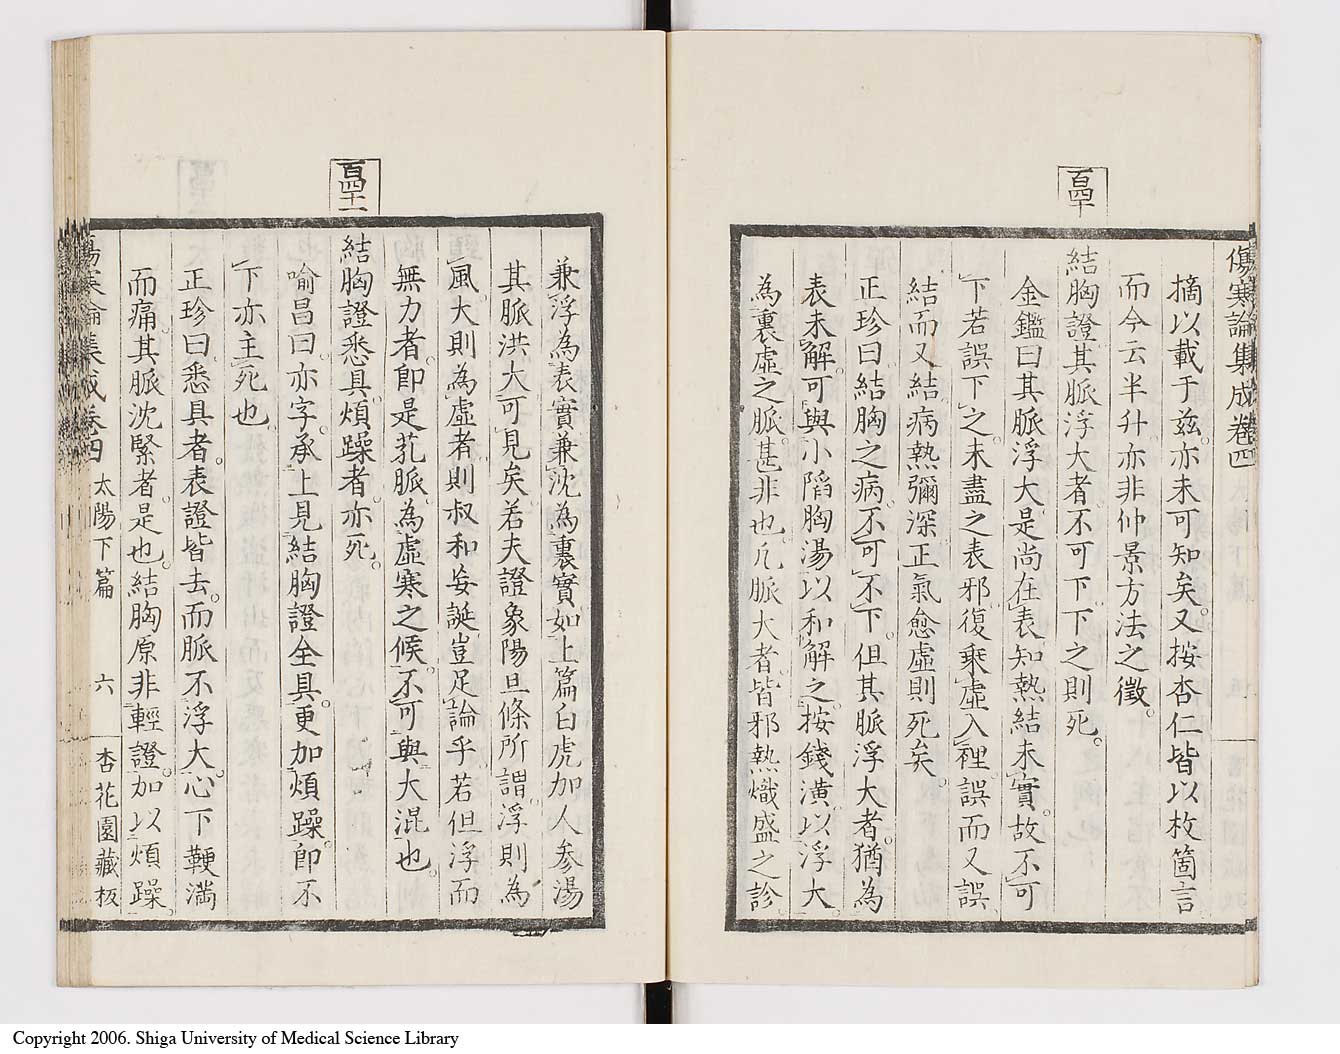 百四十
傷寒論集成卷四
摘以載于茲亦未可知矣又按杏仁皆以枚箇言
而今云半升亦非仲景方法之徵
結胸證其脈浮大者不可下下之則死
金鑑曰其脈浮大是尚在表知熱結未實故不可
下若誤下之未盡之表邪復乘虛入裡誤而又誤
結而又結病熱彌深正氣愈虛則死矣
正珍曰結胸之病不可不下但其脈浮大者猶為
表未解可與小陷胸湯以和解之按錢潢以浮大
為裏虛之脈甚非也凡脈大者皆邪熱熾盛之診
百四十一
兼浮為表實兼沈為裏實如上篇白虎加人參湯
其脈洪大可見矣若夫證象陽旦條所謂浮則為
風大則為虛者則叔和妄誕豈足論乎若但浮而
無力者卽是芤脈為虛寒之候不可與大混也
結胸證悉具煩躁者亦死
喻昌曰亦字承上見結胸證全具更加煩躁卽不
下亦主死也
正珍曰悉具者表證皆去而脈不浮大心下鞕滿
而痛其脈沈緊者是也結胸原非輕證加以煩躁
傷寒論集成卷四 太陽下篇 六 杏花園藏板
Copyright 2006. Shiga University of Medical Science Library